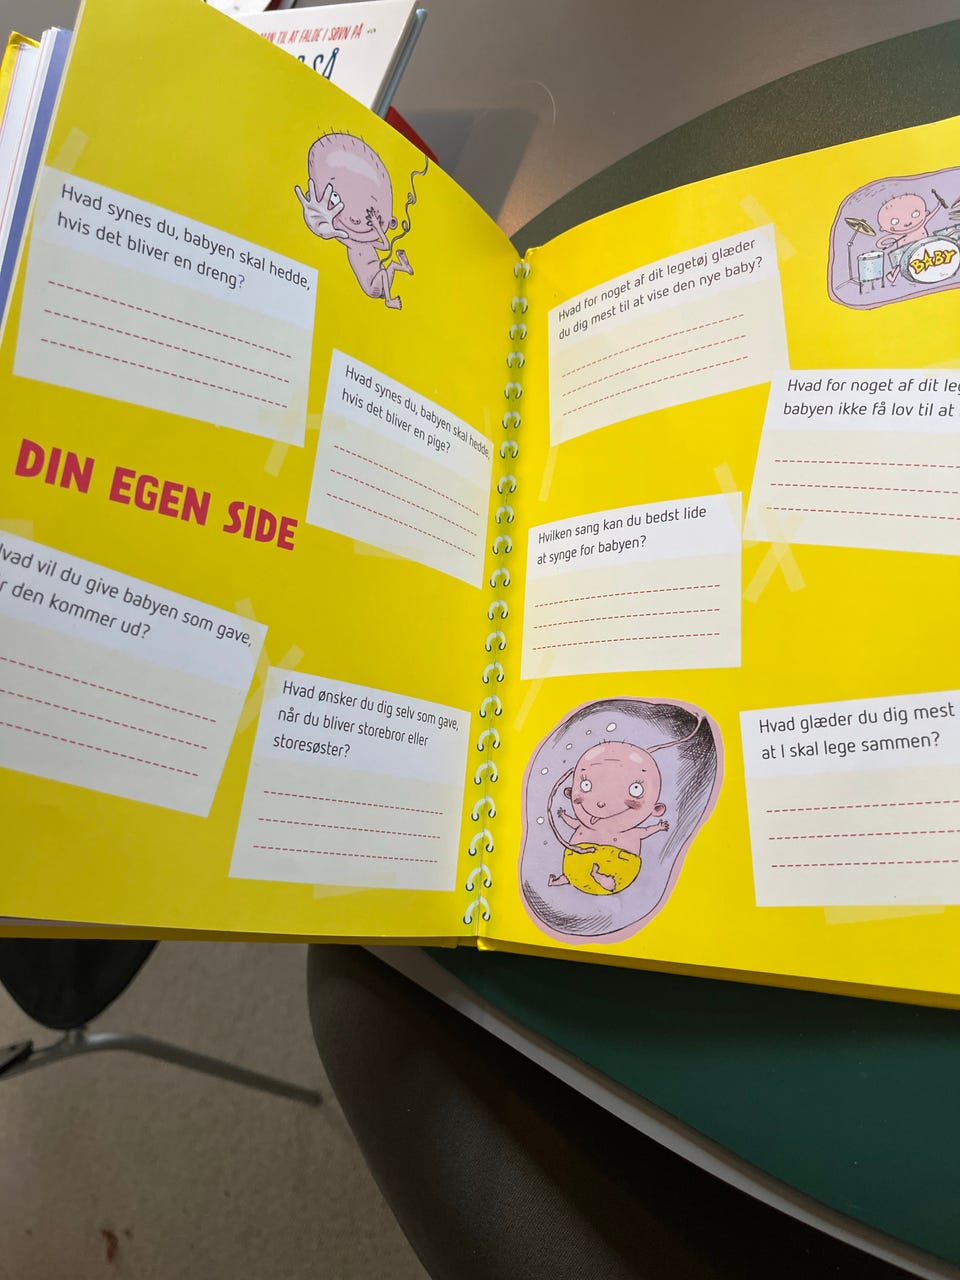 TIL AT FALDE I SØVN PÅ
Hvad synes du, babyen skal hedde,
hvis det bliver en dreng?
Hvad synes du, babyen skal hedde,
hvis det bliver en pige?
DIN EGEN SIDE
Hvad vil du give babyen som gave,
den kommer ud?
Hvad ønsker du dig selv som gave,
når du bliver storebror eller
storesøster?
Hvad for noget af dit legetøj glæder
du dig mest til at vise den nye baby?
BABY
Hvad for noget af dit
babyen ikke få lov til at
Hvilken sang kan du bedst lide
at synge for babyen?
Hvad glæder du dig mest
at I skal lege sammen?